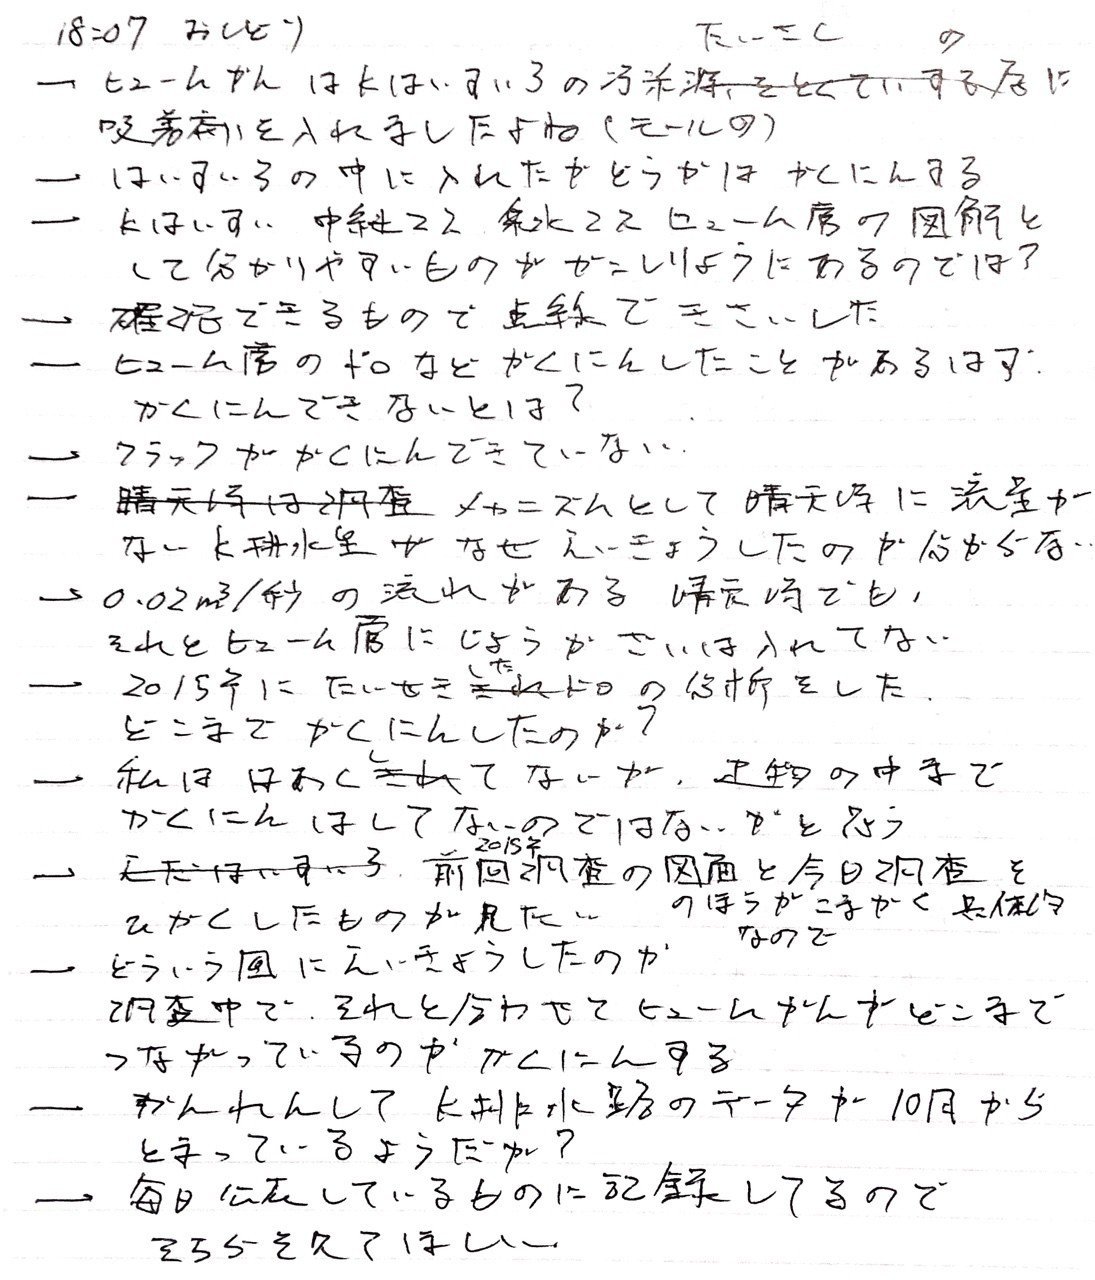 18:07 おしどり
たいさく の
一 ヒュームかんはKはいすいろの汚染源をとくていする為に
吸着剤を入れましたよね(モールの)
一 はいすいろの中に入れたかどうかはかくにんする
一 Kはいすい 中継マス 集水マス ヒューム管の図解と
して分かりやすいものが かこしりようにあるのでは?
一 確認できるもので点線できさいした
一 ヒューム管のドロなどかくにんしたことがあるはず.
かくにんできないとは?
一 クラックがかくにんできていない.
一 晴天時は調査 メカニズムとして晴天時に流量が
ないK排水路がなぜえいきょうしたのか分からない
一 0.02m³/秒の流れがある 晴天時でも,
それとヒューム管にじょうかざいは入れてない
一 2015年にたいせきした されドロの分析をした.
どこまでかくにんしたのか?
一 私ははあくし されてないが、建物の中まで
かくにんはしてないのではないかと思う
一 ただはいすいろ. 前回2015年調査の図面と今日調査を
ひかくしたものが見たい のほうがこまかく具体的
なので
一 どういう風にえいきょうしたのか
調査中で.それと合わせてヒュームかんがどこまで
つながっているのかかくにんする
一 かんれんしてK排水路のデータが10月から
とまっているようだが?
一 毎日公表しているものに記録してるので
そちらを見てほしい.